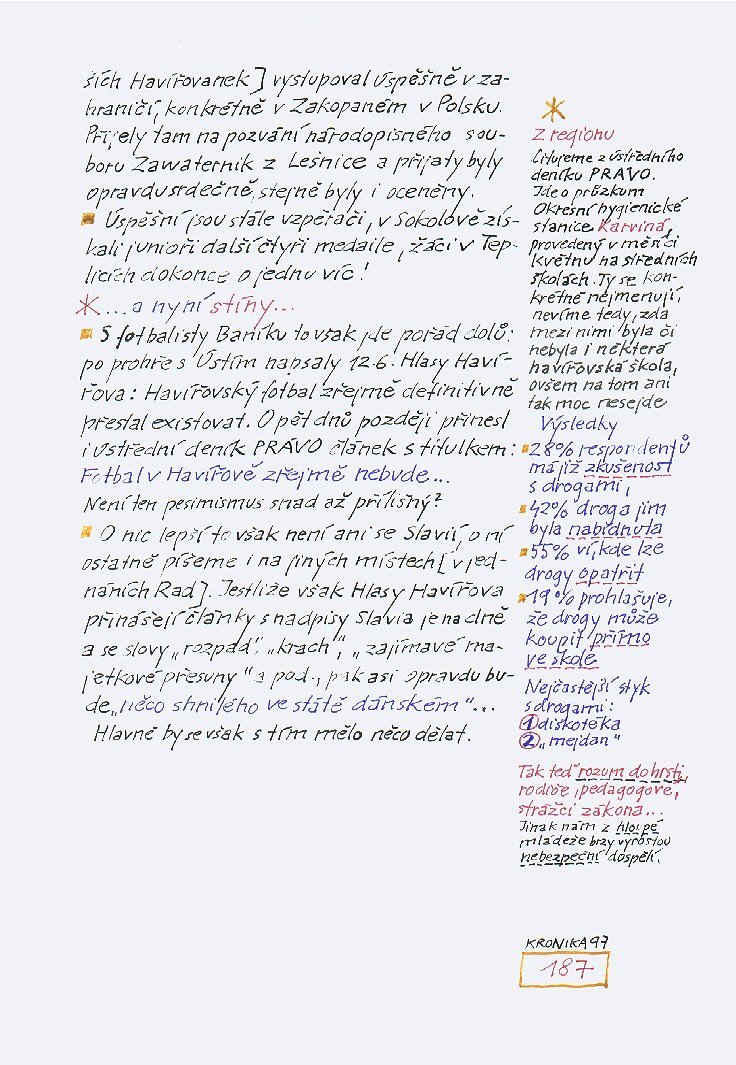 ších Havířovanek] vystupoval úspěšně v za-
hraničí, konkrétně v Zakopaném v Polsku.
Přijely tam na pozvání národopisného sou-
boru Zawaternik z Lešnice a přijaty byly
opravdu srdečně, stejně byly i oceněny.
Úspěšní jsou stále vzpěrači, v Sokolově zís-
kali junioři další čtyři medaile, žáci v Tep-
licích dokonce o jednu víc!
... a nyní stíny...
S fotbalisty Baníku to však jde pořád dolů:
po prohře s Ústím napsaly 12.6. Hlasy Haví-
řova: Havířovský fotbal zřejmě definitivně
přestal existovat. O pět dnů později přinesl
i ústřední deník PRÁVO článek s titulkem:
Fotbal v Havířově zřejmě nebude...
Není ten pesimismus snad až přílišný?
O nic lepší to však není ani se Slavií, o ní
ostatně píšeme i na jiných místech [v jed-
náních Rad]. Jestliže však Hlasy Havířova
přinášejí články s nadpisy Slavia je na dně
a se slovy „rozpad", „krach", „zajímavé ma-
jetkové přesuny" a pod., pak asi opravdu bu-
de „něco shnilého ve státě dánském"...
Hlavně by se však s tím mělo něco dělat.
Z regionu
Citujeme z ústředního
deníku PRÁVO.
Jde o průzkum
Okresní hygienické
stanice Karviná,
provedený v měsíci
květnu na středních
školách. Ty se kon-
krétně nejmenují,
nevíme tedy, zda
mezi nimi byla či
nebyla i některá
havířovská škola,
ovšem na tom ani
tak moc nesejde
Výsledky
28% respondentů
má již zkušenost
s drogami,
42% droga jim
byla nabídnuta
55% ví, kde lze
drogy opatřit
19% prohlašuje,
že drogy může
koupit přímo
ve škole
Nejčastější styk
s drogami:
1 diskotéka
2 „mejdan"
Tak teď rozum do hrsti,
rodiče, pedagogové,
strážci zákona...
Jinak nám z hloupé
mládeže brzy vyrostou
nebezpeční dospělí.
KRONIKA 97
187